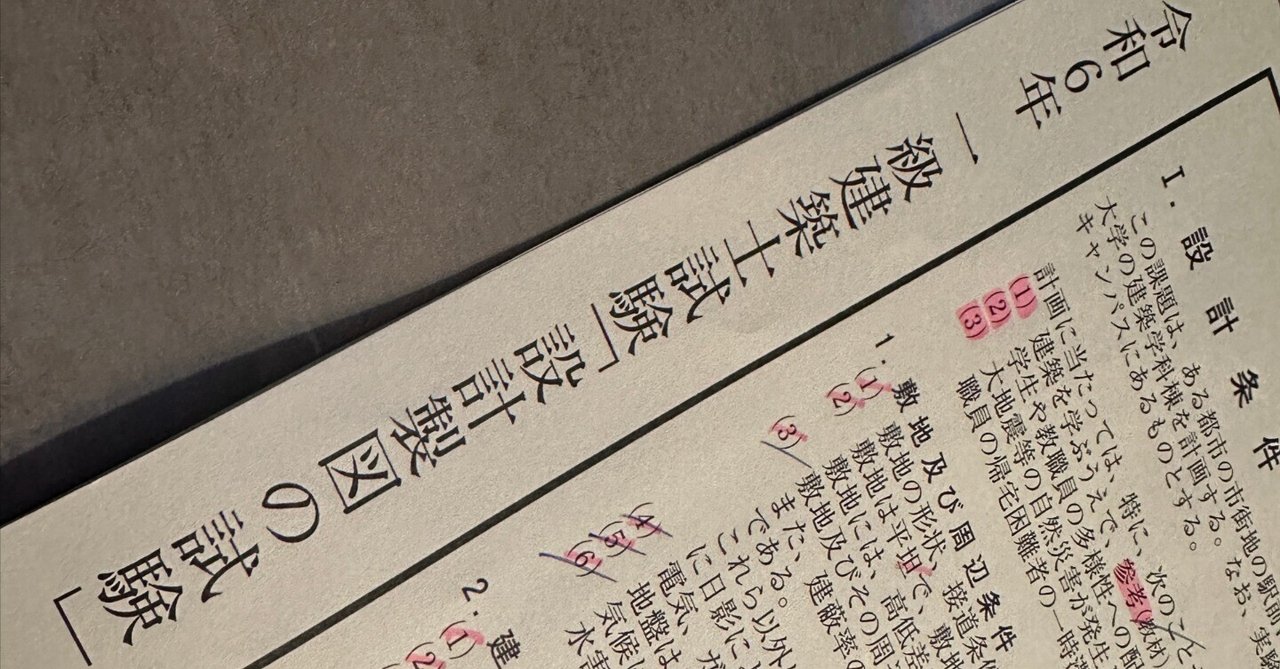 令和6年
一級建築士試験「設計製図の試験」
I. 設計条件
この課題は、ある都市の市街地の駅前
大学の建築学科棟を計画する。なお、実験
キャンパスにあるものとする。
計画に当たっては、特に、次のこと
(1) 建築を学ぶうえで、参考
(2) 学生や教職員の多様性への配
(3) 大地震等の自然災害が発生
職員の帰宅困難者の一時
1. 敷地及び周辺条件
(1) 敷地の形状、接道条件
(2) 敷地は平坦で、敷地
(3) 敷地には、高低差
敷地及びその周
また、建蔽率の
である。
これら以外
に日影に
(4) 電気、
(5) 地盤は
(6) 気候
水害
2. 建
(1)
(2)